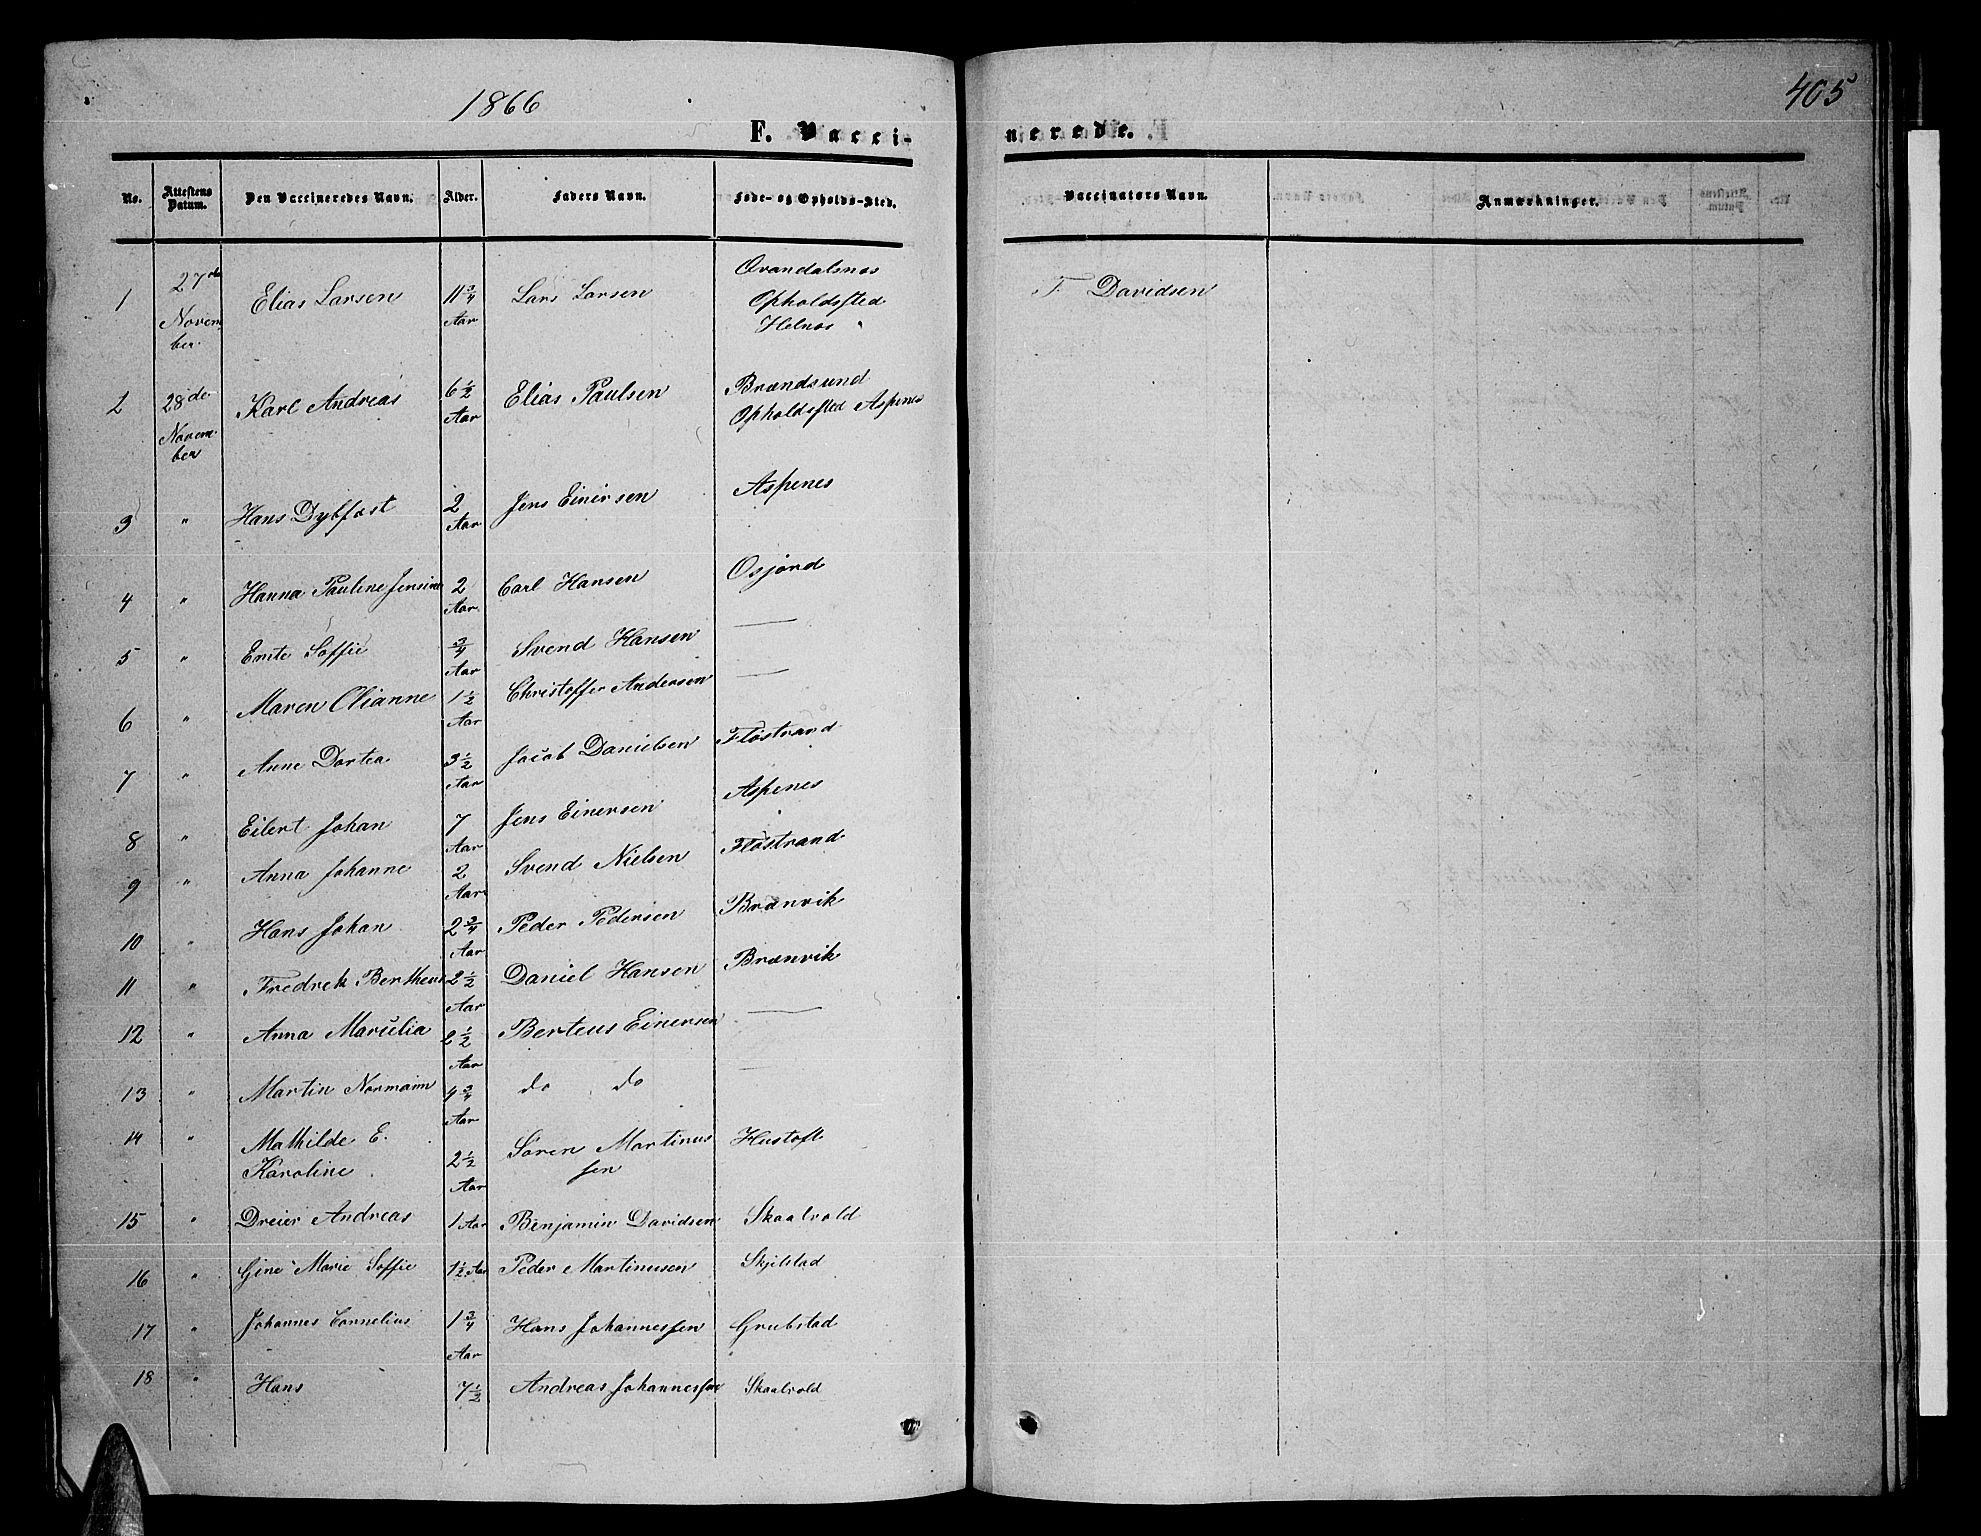 1866
405
F. Vaccinerede.
No. Attestens Datum. Den Vaccineredes Navn. Alder. Faders Navn. Føde- og Opholds-Sted. Vaccinators Navn. Anmærkninger.
1 27de November Elias Larsen 11 3/4 Aar Lars Larsen Ovandalsnæs Opholdssted Helnæs F Davidsen
2 28de November Karl Andreas 6 1/2 Aar Elias Paulsen Brændsund Opholdssted Aspenes
3 " Hans Dybfest 2 Aar Jens Einersen Aspenes
4 " Hanna Pauline Jensine 2 Aar Carl Hansen Osjord
5 " Ente Soffie 3/4 Aar Svend Hansen —
6 " Maren Olianne 1 1/2 Aar Christoffer Andersen —
7 " Anne Dortea 3 1/2 Aar Jacob Danielsen Flostrand
8 " Eilert Johan 7 Aar Jens Einersen Aspenes
9 " Anna Johanne 2 Aar Svend Nielsen Flostrand
10 " Hans Johan 2 3/4 Aar Peder Pedersen Brænvik
11 " Fredrek Bertheus 2 1/2 Aar Daniel Hansen Brænvik
12 " Anna Marulia 2 1/2 Aar Berteus Einersen —
13 " Martin Normann 4 3/4 Aar do do —
14 " Mathilde E. Karoline 2 1/2 Aar Søren Martinussen Hustoft
15 " Dreier Andreas 1 Aar Benjamin Davidsen Skaalvold
16 " Gine Marie Soffie 1 1/2 Aar Peder Martinusen Skjelstad
17 " Johannes Cornelius 1 3/4 Aar Hans Johannessen Grubstad
18 " Hans 7 1/2 Andreas Johannessen Skaalvold